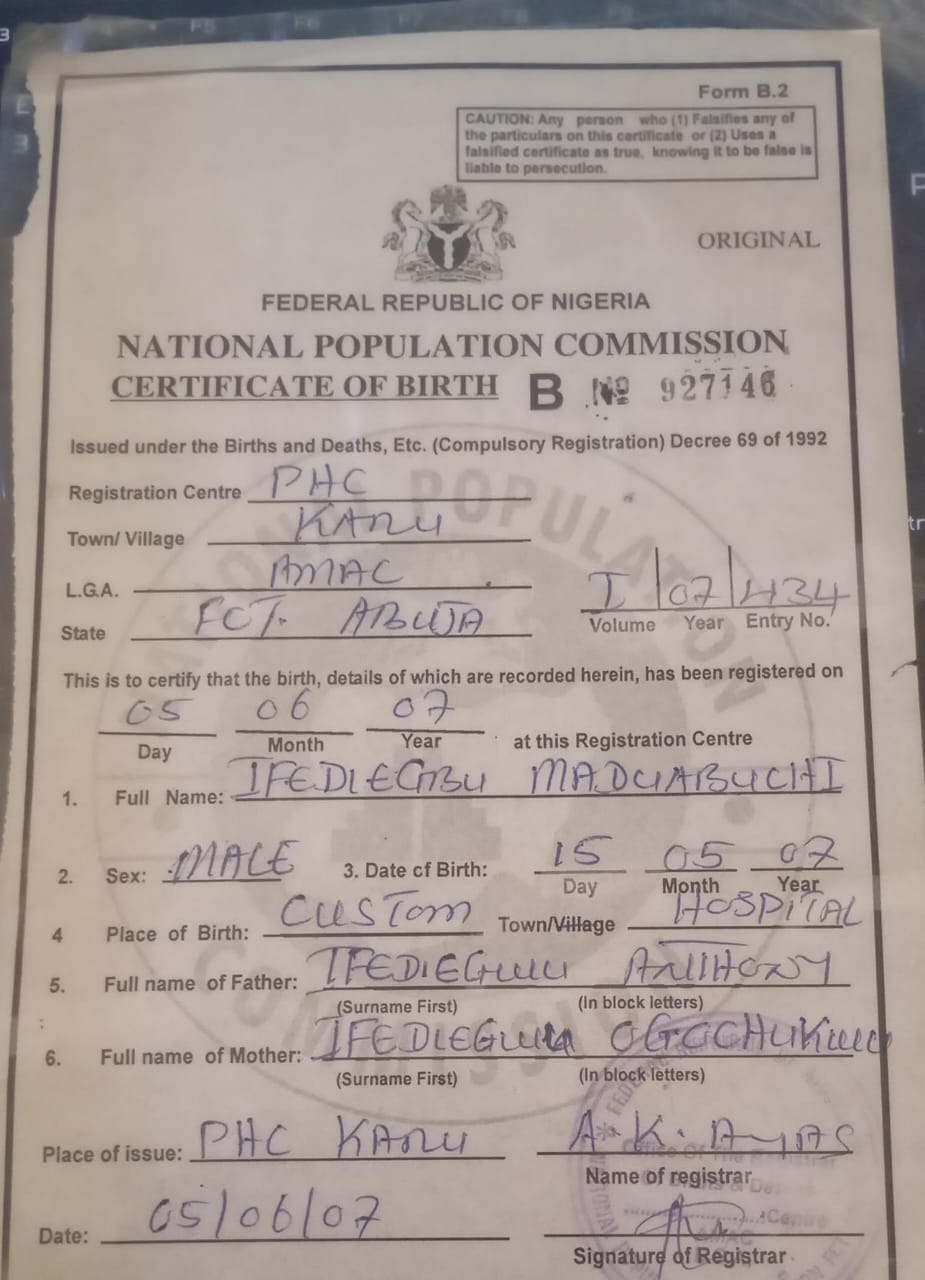 Form B.2
CAUTION: Any person who (1) Falsifies any of
the particulars on this certificate or (2) Uses a
falsified certificate as true, knowing it to be false is
liable to persecution.
ORIGINAL
FEDERAL REPUBLIC OF NIGERIA
NATIONAL POPULATION COMMISSION
CERTIFICATE OF BIRTH B No 927146
Issued under the Births and Deaths, Etc. (Compulsory Registration) Decree 69 of 1992
Registration Centre PHC
Town/ Village KARU
L.G.A. AMAC
State FCT. ABUJA
I 07 434
Volume Year Entry No.
This is to certify that the birth, details of which are recorded herein, has been registered on
05 06 07
Day Month Year at this Registration Centre
1. Full Name: IFEDIEGBU MADUABUCHI
2. Sex: MALE 3. Date of Birth: 15 05 07
Day Month Year
4 Place of Birth: CUSTOM Town/Village HOSPITAL
5. Full name of Father: IFEDIEGWU ANTHONY
(Surname First) (In block letters)
6. Full name of Mother: IFEDIEGWU OGOCHUKWU
(Surname First) (In block letters)
Place of issue: PHC KARU A. K.
Name of registrar
Date: 05/06/07
Signature of Registrar